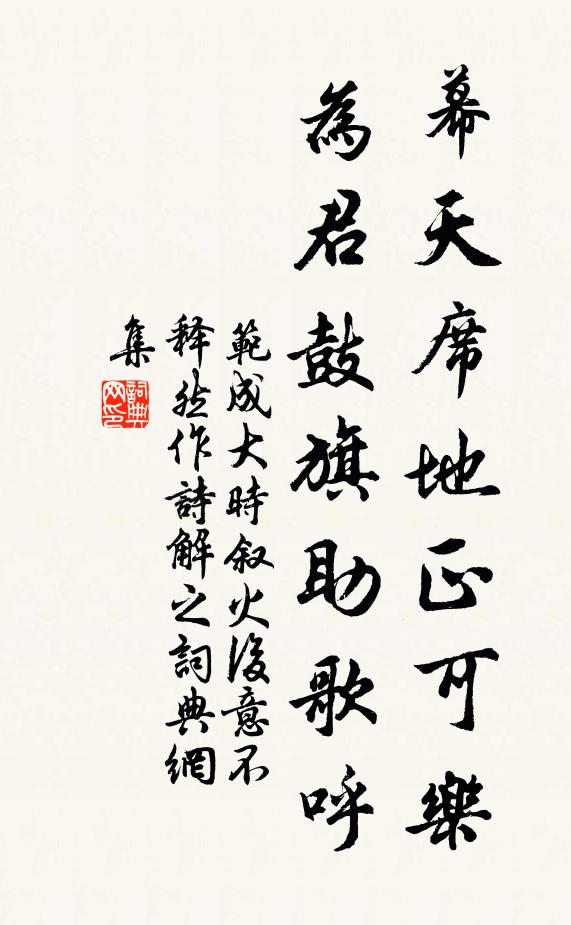 幕天席地正可樂
為君鼓旗助歌呼
範成大時叙火後意不
釋然作詩解之詞典網
集
詞典
网印